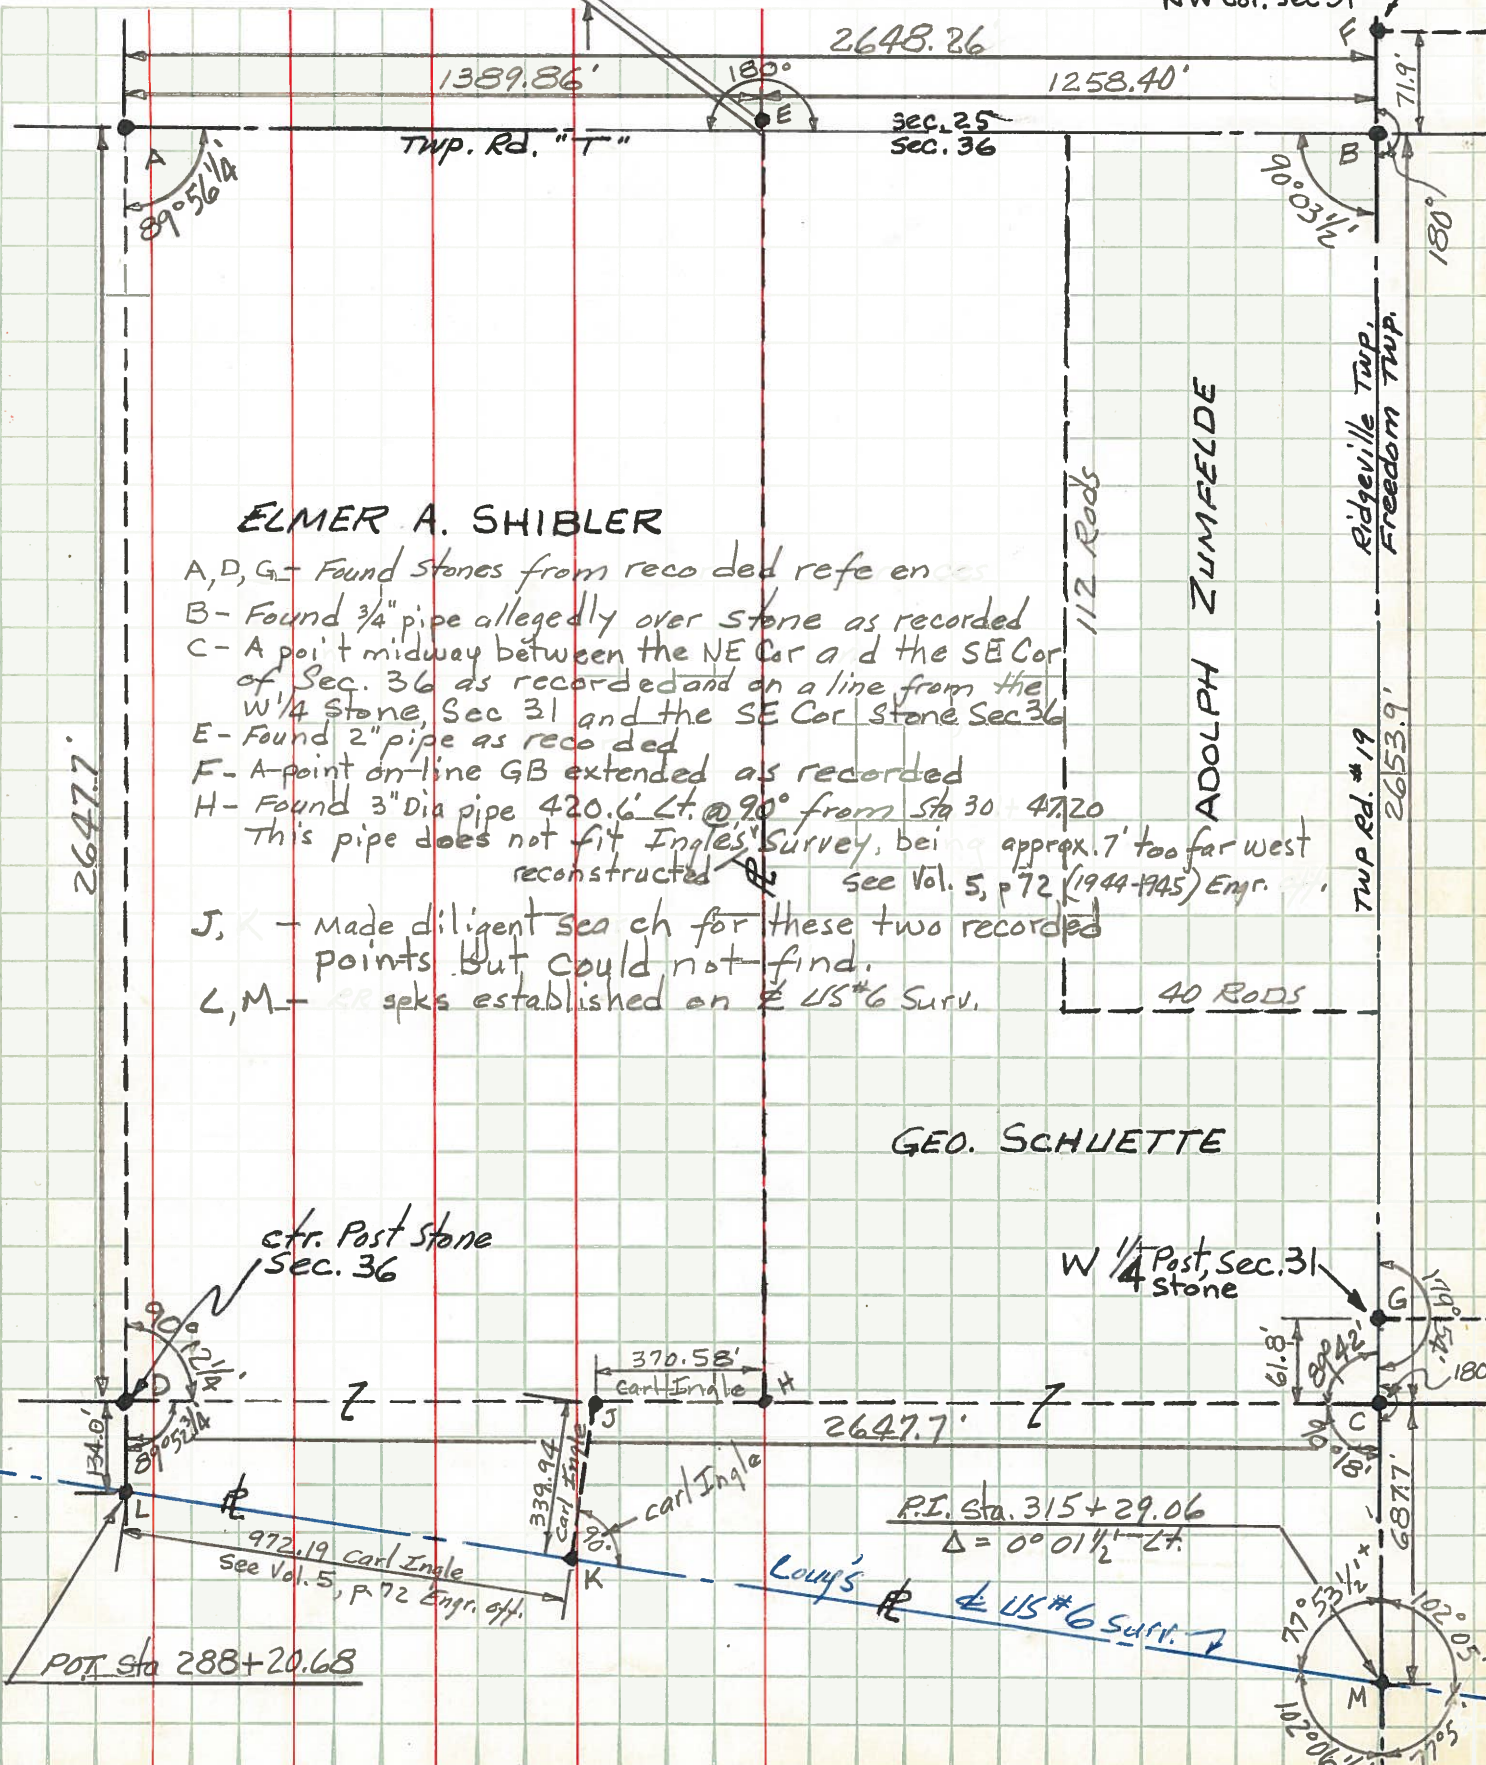 NW Cor. Sec 31
F
2648.26
1389.86'
180°
1258.40'
71.9'
E
A
Twp. Rd. "T"
sec. 25
sec. 36
B
89°56 1/4'
90°03 1/2'
180°
Ridgeville Twp.
Freedom Twp.
ELMER A. SHIBLER
112 Rods
ADOLPH ZUMFELDE
A, D, G - Found Stones from reco ded refe en
B - Found 3/4" pipe allegedly over stone as recorded
C - A poi t midway between the NE Cor a d the SE Cor
of Sec. 36 as recorded and on a line from the
W 1/4 Stone, Sec 31 and the SE Cor Stone Sec 36
E - Found 2" pipe as reco ded
F - A point on line GB extended as recorded
H - Found 3" Dia pipe 420.6' Lt. @ 90° from sta 30 47.20
This pipe does not fit Ingle's Survey, bei approx. 7' too far west
reconstructed
see Vol. 5, p 72 (1944-1945) Engr.
J, K - Made diligent sea ch for these two recorded
points but could not find.
L, M - spks established on ℄ US #6 Surv.
2647.7'
Twp Rd. #19
2653.9'
40 RODS
GEO. SCHUETTE
ctr. Post Stone
Sec. 36
W 1/4 Post, Sec. 31
Stone
G
179°54'
61.8'
89°42'
180
90°12 1/8'
D
370.58'
Carl Ingle
H
J
2647.7'
C
90°18'
134.0'
89°52 3/4'
339.94
Carl Ingle
carl Ingle
90°
L
℄
972.19 Carl Ingle
See Vol. 5, p. 72 Engr. off.
K
P.I. Sta. 315+29.06
Δ = 0°01 1/2' Lt.
687.7'
Louy's ℄
℄ US #6 Surv.
77°53 1/2'
102°05'
POT Sta 288+20.68
M
102°06
77°5